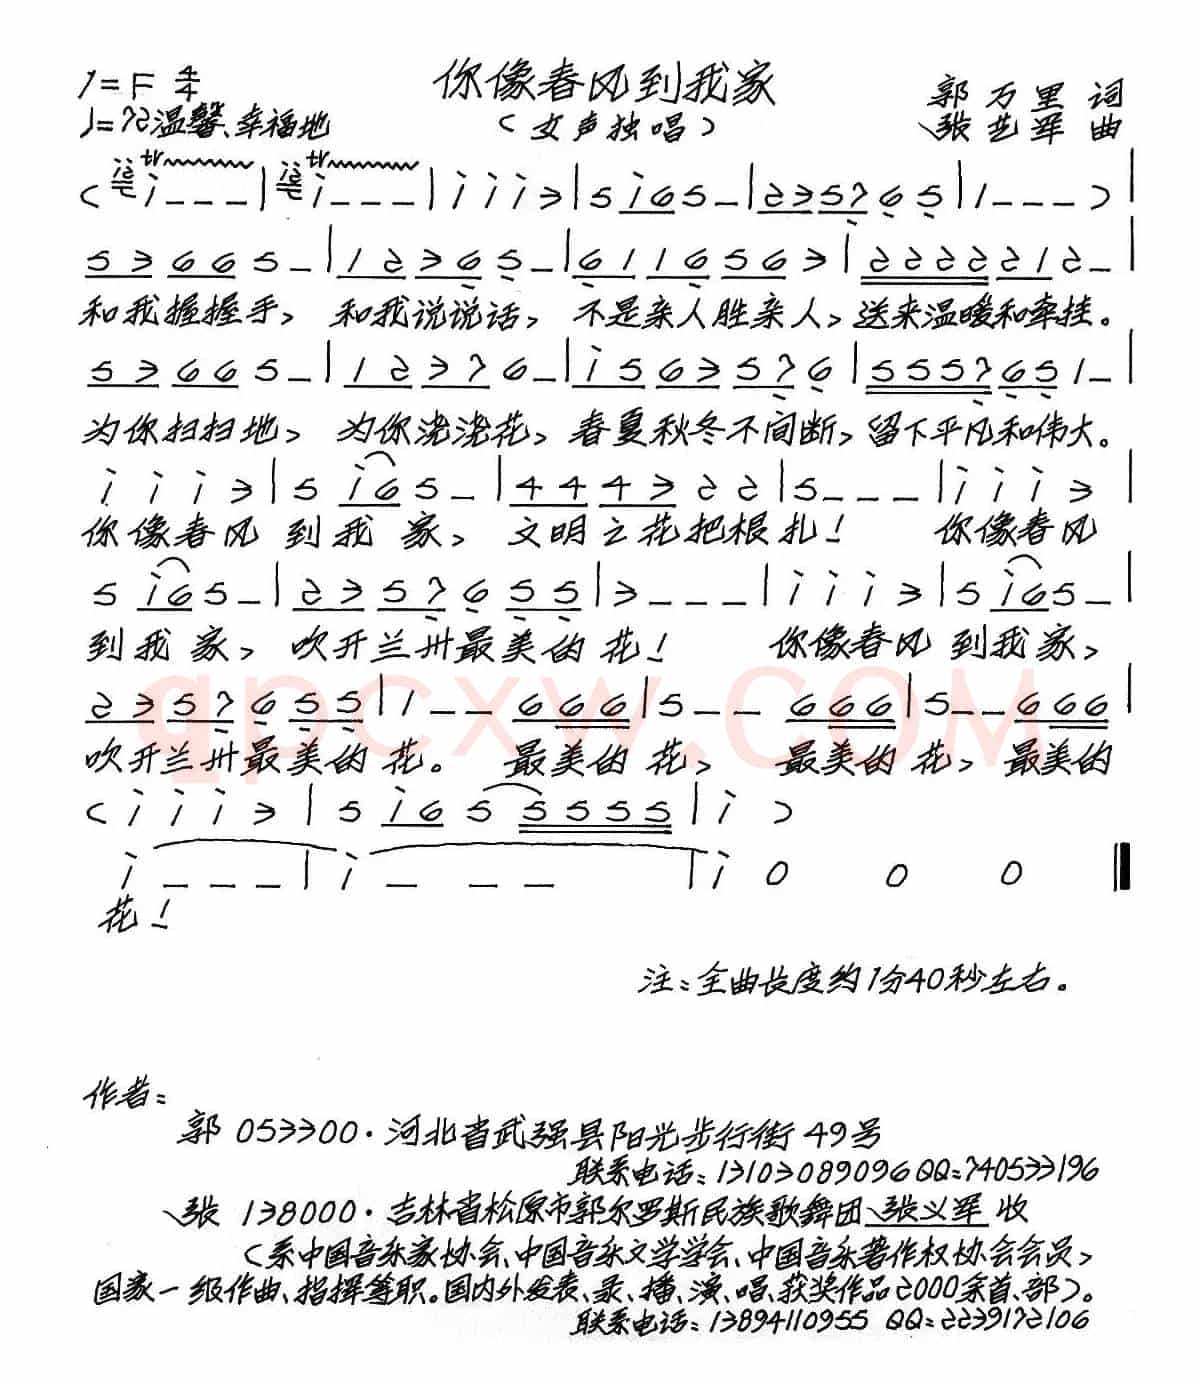 你像春风到我家
1=F 4/4
郭万里 词
♩=72 温馨、幸福地
(女声独唱)
张艺军 曲
( i - - - | i - - - | i i i 3 | 5 i 6 5 - | 2 3 5 7 6 5 | 1 - - - )
5 3 6 6 5 - | 1 2 3 6 5 - | 6 1 1 6 5 6 3 | 2 2 2 2 2 1 2 - |
和我握握手, 和我说说话, 不是亲人胜亲人, 送来温暖和牵挂。
5 3 6 6 5 - | 1 2 3 7 6 - | i 5 6 3 5 7 6 | 5 5 5 7 6 5 1 - |
为你扫扫地, 为你浇浇花, 春夏秋冬不间断, 留下平凡和伟大。
i i i 3 | 5 i 6 5 - | 4 4 4 3 2 2 | 5 - - - | i i i 3 |
你像春风 到我家, 文明之花把根扎! 你像春风
5 i 6 5 - | 2 3 5 7 6 5 5 | 3 - - - | i i i 3 | 5 i 6 5 - |
到我家, 吹开兰州最美的花! 你像春风 到我家,
2 3 5 7 6 5 5 | 1 - - 6 6 6 | 5 - - 6 6 6 | 5 - - 6 6 6 |
吹开兰州最美的花。 最美的花, 最美的花, 最美的
( i i i 3 | 5 i 6 5 5 5 5 5 | i )
i - - - | i - - - | i 0 0 0
花!
注:全曲长度约1分40秒左右。
作者:
郭 053300·河北省武强县阳光步行街49号
联系电话:13103089096 QQ:740533196
张 138000·吉林省松原市郭尔罗斯民族歌舞团 张义军 收
(系中国音乐家协会、中国音乐文学学会、中国音乐著作权协会会员,
国家一级作曲、指挥等职。国内外发表、录、播、演、唱、获奖作品2000余首、部)。
联系电话:13894110955 QQ:2239172106
qpcxw.COM